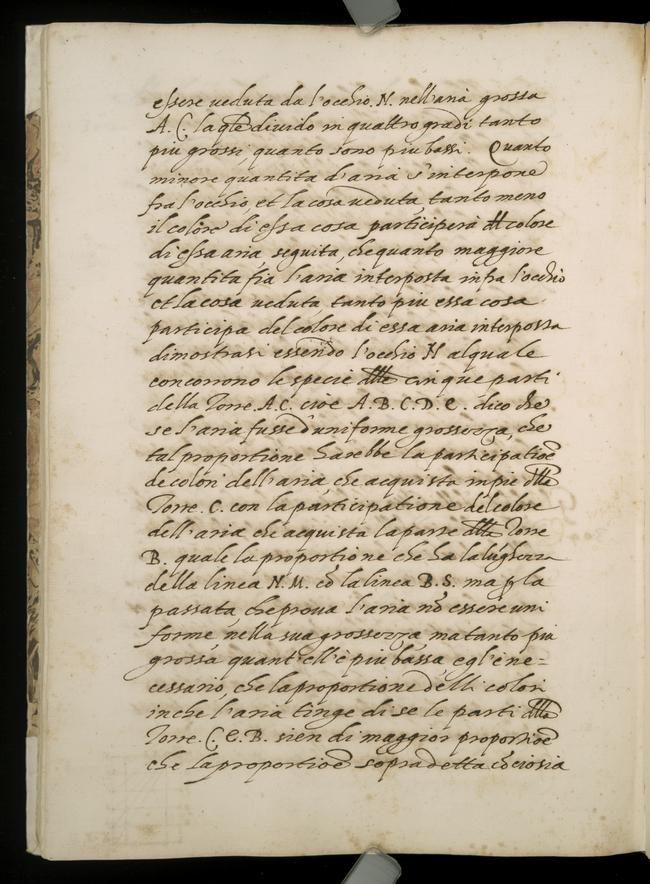 essere veduta da l'occhio. N. nell'aria grossa
A. C. la qle divido in quattro gradi tanto
piu grossi, quanto sono piu bassi. Quanto
minore quantita d'aria s'interpone
fra l'occhio et la cosa veduta, tanto meno
il colore di essa cosa participera dll colore
di essa aria seguita, che quanto maggiore
quantita fia l'aria interposta infra l'occhio
et la cosa veduta, tanto piu essa cosa
participa del colore di essa aria interposta
dimostrasi essendo l'occhio N al quale
concorrono le specie dlle cinque parti
della Torre. A. C. cioè A. B. C. D. E. dico che
se l'aria fusse d'uniforme grossezza, che
tal proportione harebbe la participatioē
de colori dell'aria, che acquista in pie dlla
Torre. C. con la participatione del colore
dell'aria che acquista la parte dlla Torre
B. quale la proportione che ha la lūghezza
della linea N. M. cō la linea B. S. ma p la
passata, che prova l'aria nō essere uni
forme, nella sua grossezza, ma tanto piu
grossa, quant'ell'è piu bassa, egl'è ne=
cessario, che la proportione delli colori
in che l'aria tinge di se le parti dlla
Torre. C. E. B. sien di maggior proportioē
che la proportioē sopra detta cōciosia